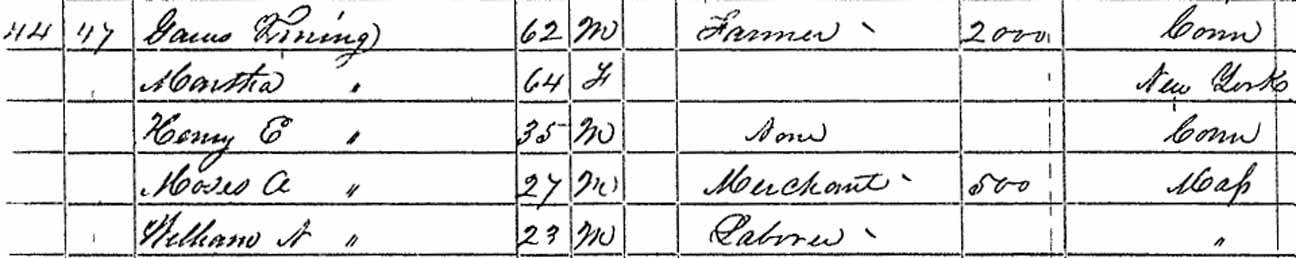 44 47 Gaius Vining 62 M Farmer 2000 Conn
Martha " 64 F New York
Henry E " 35 M None Conn
Moses A " 27 M Merchant 500 Mass
William N " 23 M Laborer "